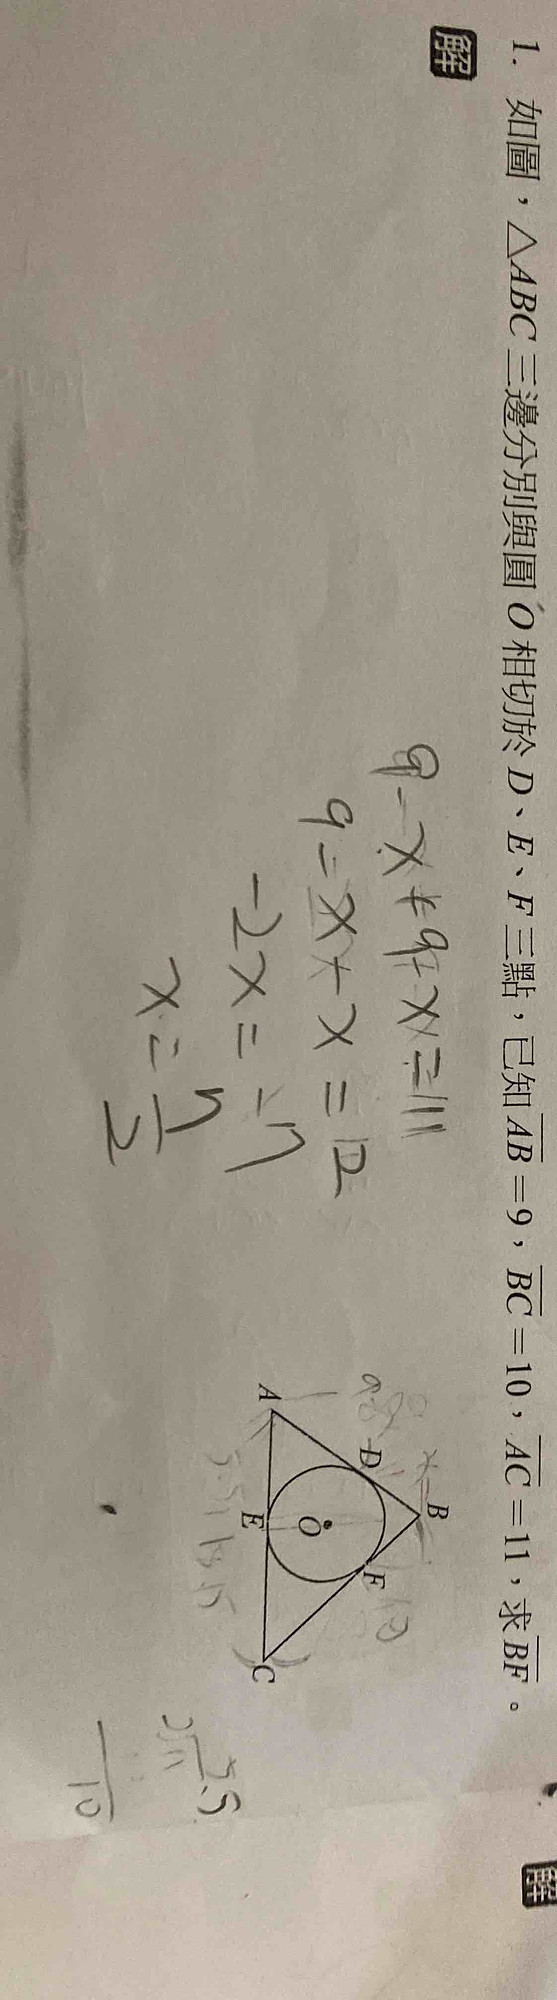 1. 如圖，△ABC三邊分別與圓O相切於D、E、F三點，已知AB=9，BC=10，AC=11，求BF。
解
9-x+9+x=11
9-x+x=12
-2x=-7
x=7/2
B
D
F
O
A
E
C
10
5.5
解